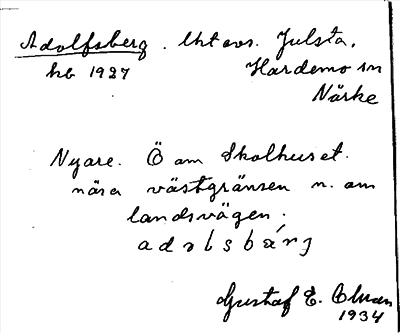 Adolfsberg. Lht avs. Julsta,
hb 1927 Hardemo sn
Närke
Nyare. Ö om Skolhuset.
nära västgränsen n. om
landsvägen.
adɔlsbärj
Gustaf E.
1934